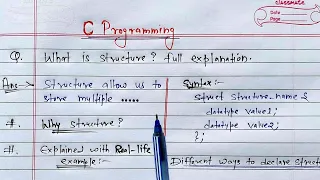 classmate
Date
Page
C Programming
Q. What is structure? full explanation.
Ans:- Structure allow us to
store multiple .....
#. Why structure?
#. Explained with Real-life
example:-
Syntax:-
struct structure_name {
datatype value1;
datatype value2;
};
Different ways to declare struct